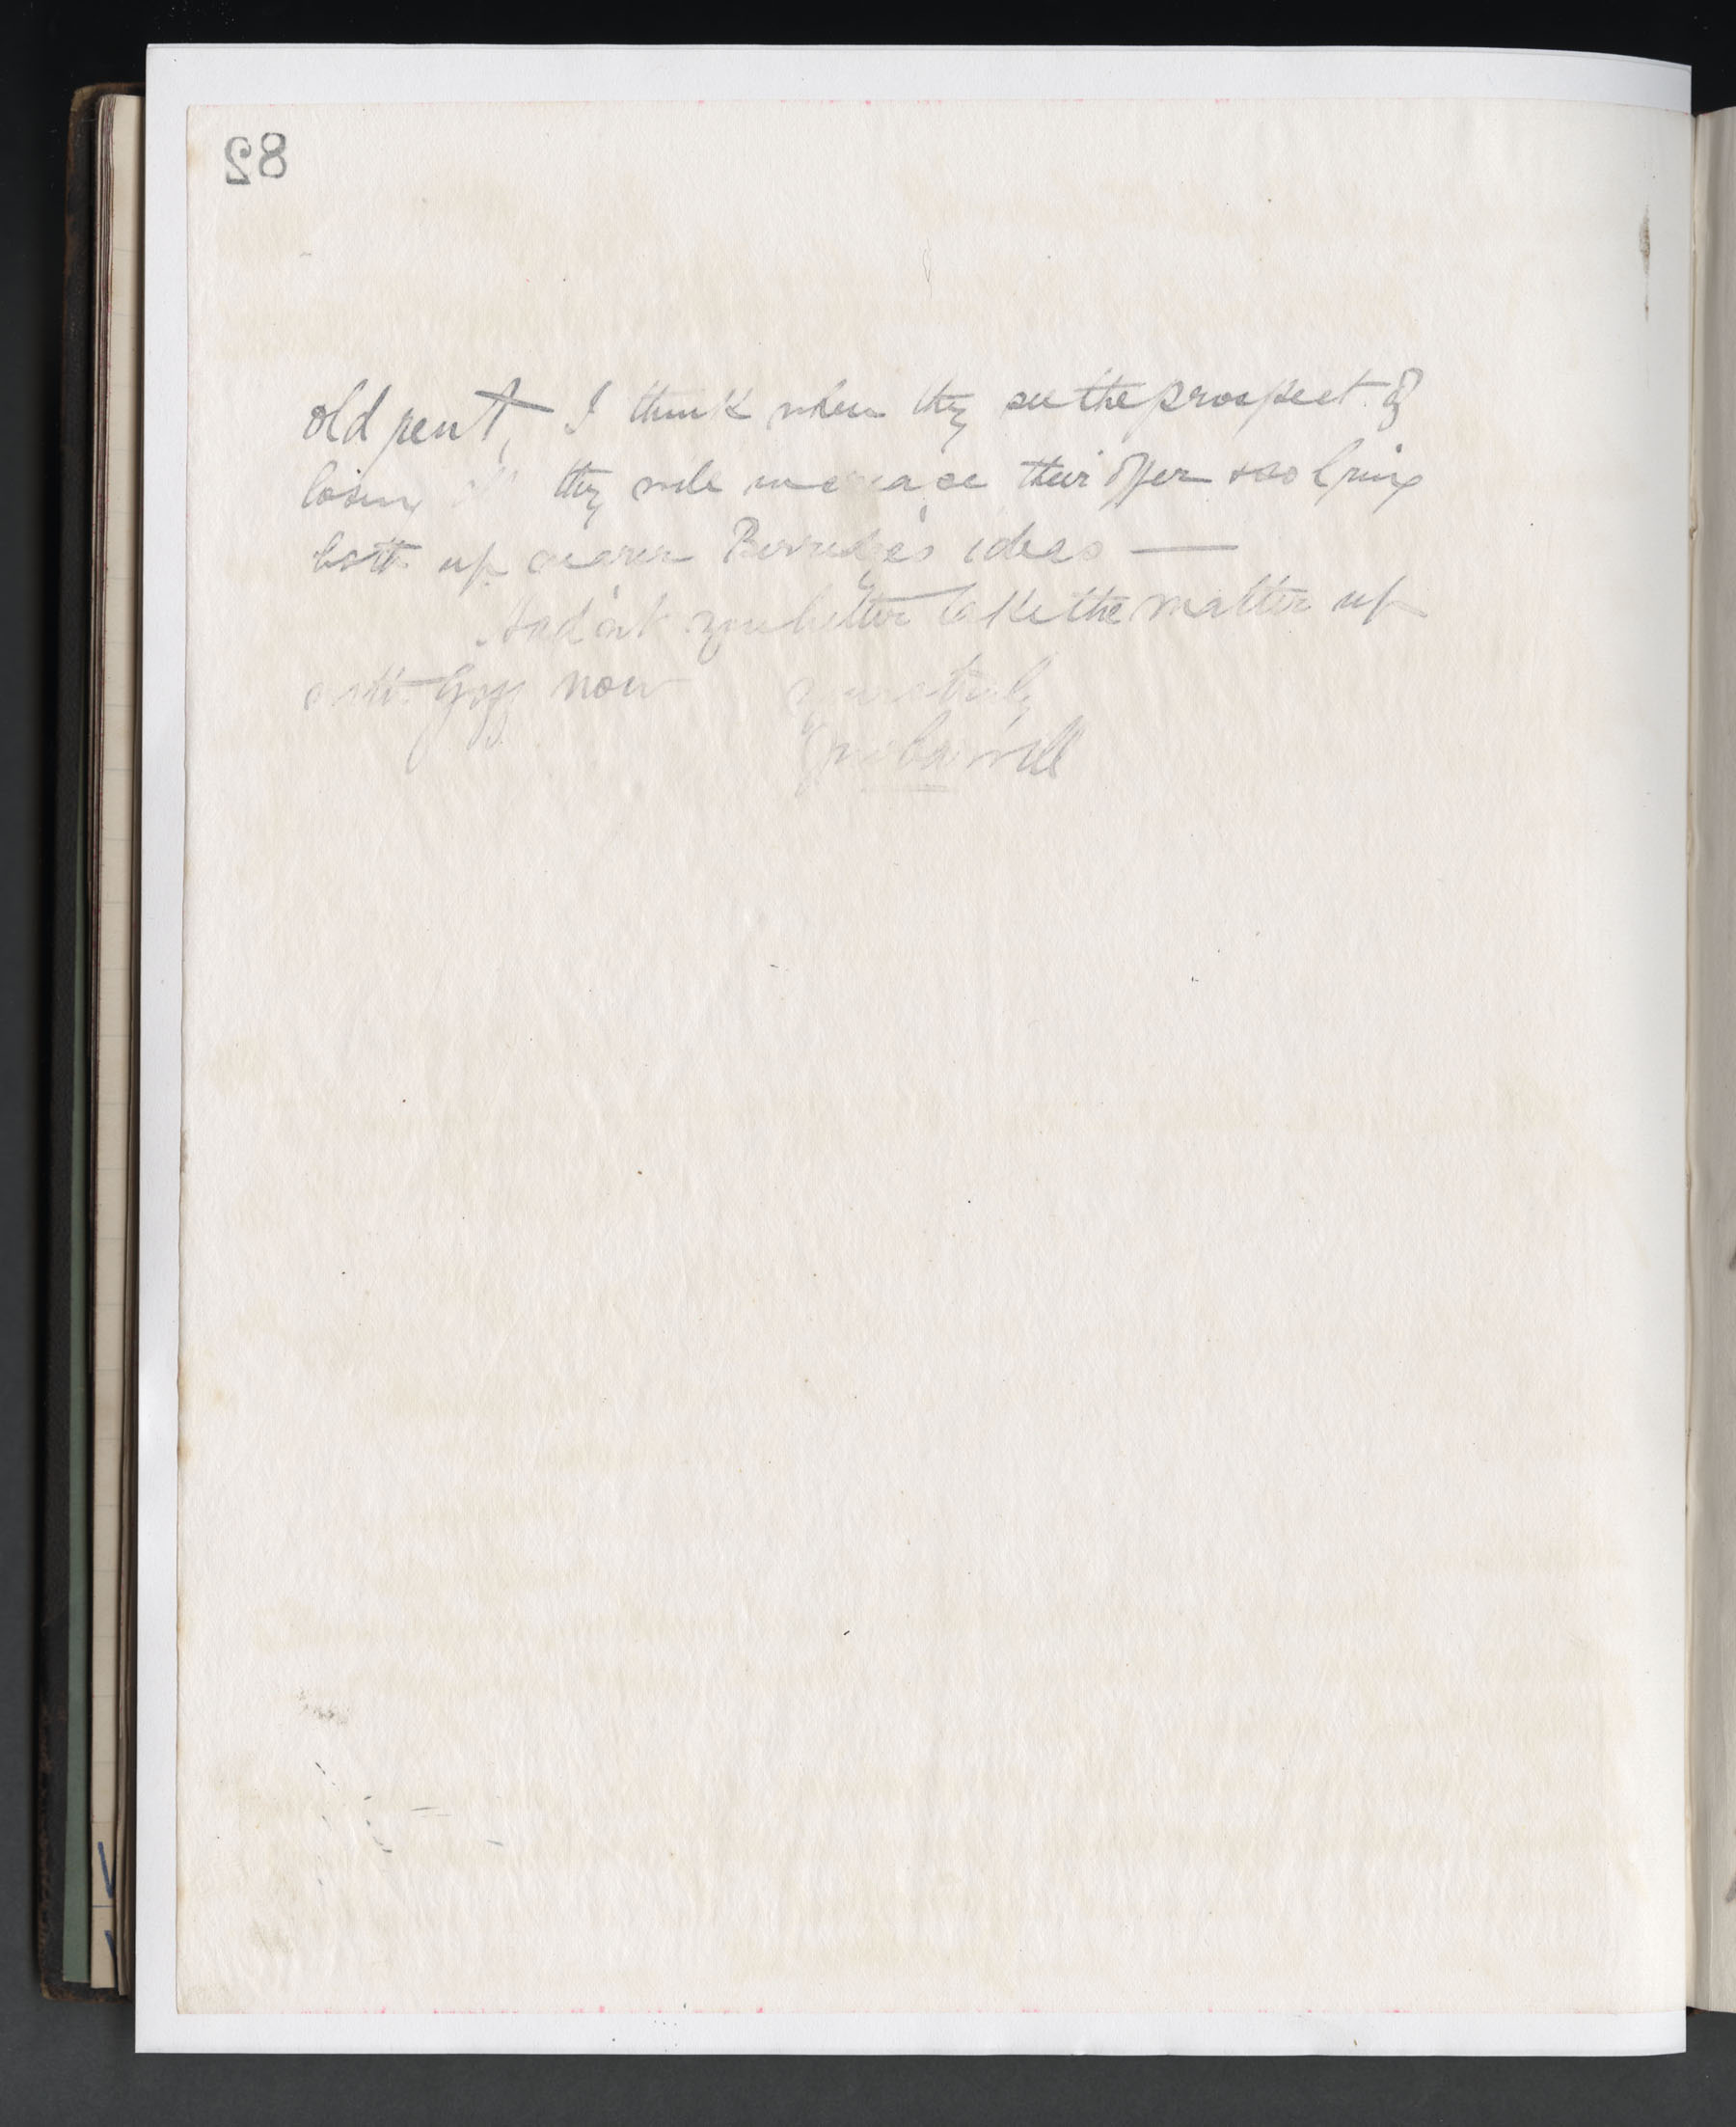 82
old rent, I think when they see the prospect of
losing they will increase their offer & so bring
both up nearer Berridge's ideas —
Had'nt you better take the matter up
with now yours truly